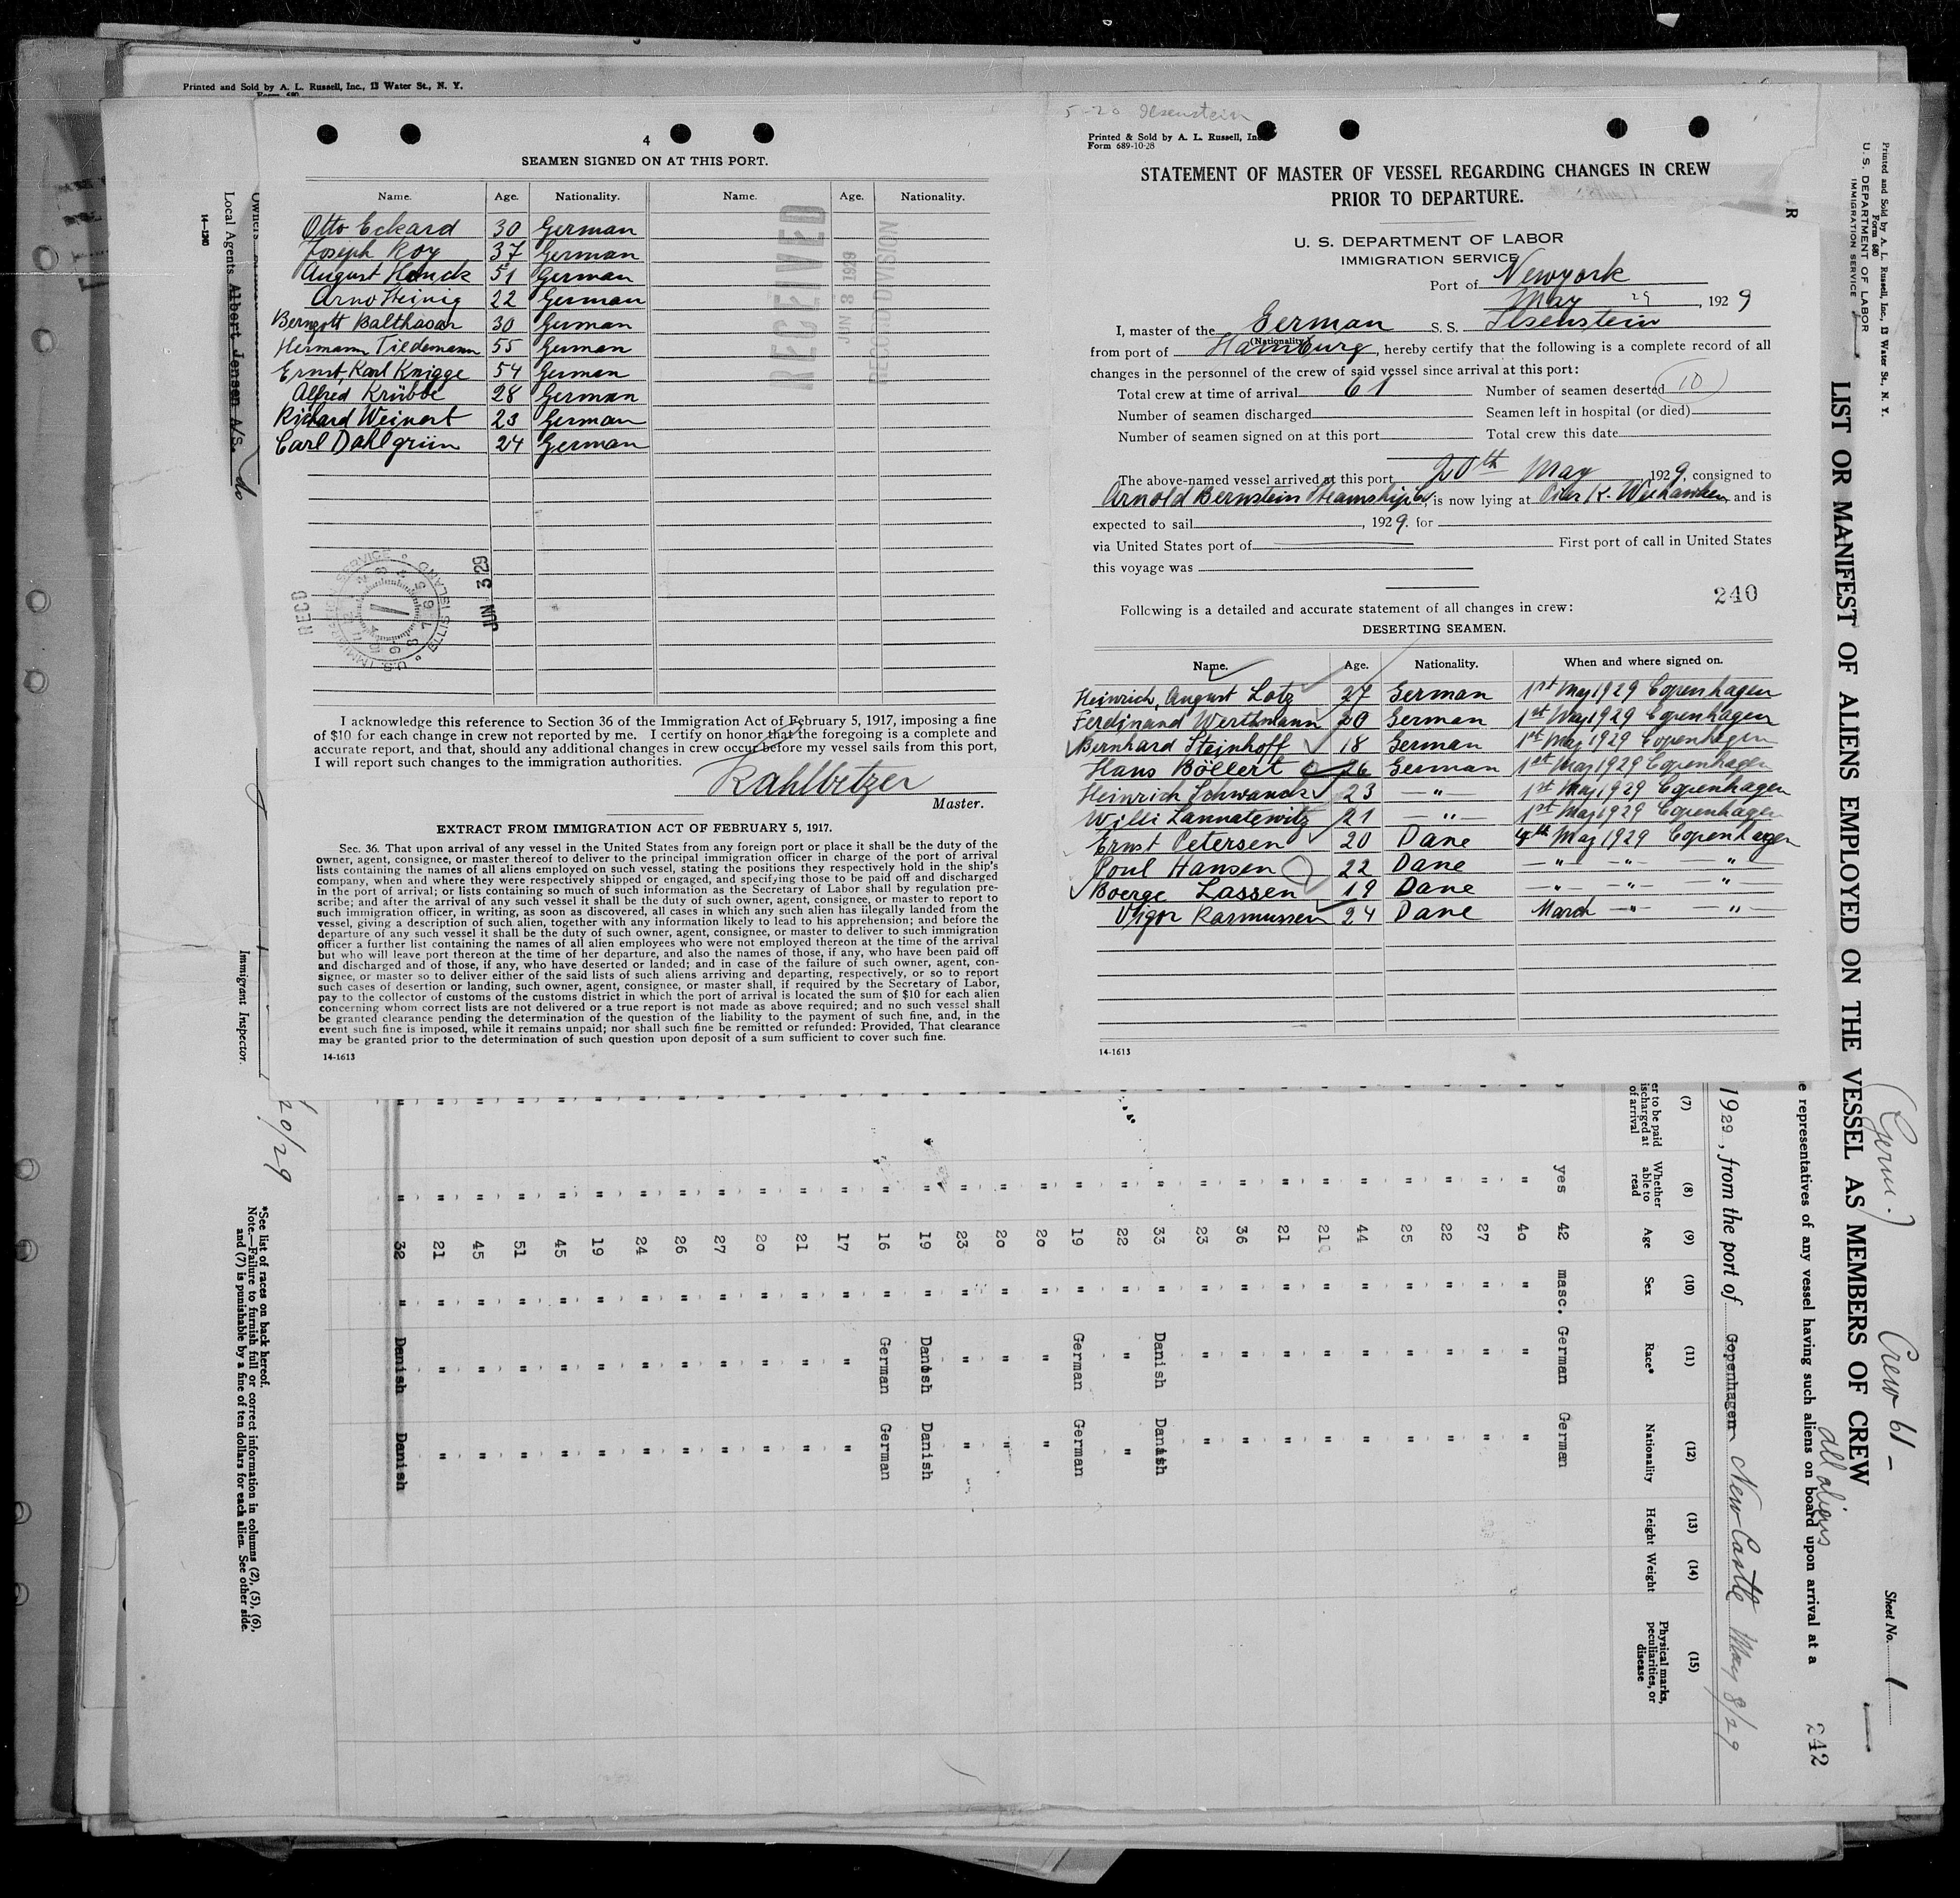 Printed and Sold by A. L. Russell, Inc., 13 Water St., N. Y.
Form 680
4
SEAMEN SIGNED ON AT THIS PORT.
Name. Age. Nationality. Name. Age. Nationality.
Otto Eckard 30 German
Joseph Roy 37 German
August Henck 51 German
Arno Heinig 22 German
Berngott Balthasar 30 German
Hermann Tiedemann 55 German
Ernst, Karl Knigge 54 German
Alfred Krübbe 28 German
Richard Weinert 23 German
Carl Dahlgrün 24 German
RECEIVED
JUN 8 1929
RECORD DIVISION
RECD
U.S. IMMIGRATION SERVICE ELLIS ISLAND
JUN 3 29
I acknowledge this reference to Section 36 of the Immigration Act of February 5, 1917, imposing a fine
of $10 for each change in crew not reported by me. I certify on honor that the foregoing is a complete and
accurate report, and that, should any additional changes in crew occur before my vessel sails from this port,
I will report such changes to the immigration authorities.
Kahlbetzer
Master.
EXTRACT FROM IMMIGRATION ACT OF FEBRUARY 5, 1917.
Sec. 36. That upon arrival of any vessel in the United States from any foreign port or place it shall be the duty of the
owner, agent, consignee, or master thereof to deliver to the principal immigration officer in charge of the port of arrival
lists containing the names of all aliens employed on such vessel, stating the positions they respectively hold in the ship's
company, when and where they were respectively shipped or engaged, and specifying those to be paid off and discharged
in the port of arrival; or lists containing so much of such information as the Secretary of Labor shall by regulation pre-
scribe; and after the arrival of any such vessel it shall be the duty of such owner, agent, consignee, or master to report to
such immigration officer, in writing, as soon as discovered, all cases in which any such alien has illegally landed from the
vessel, giving a description of such alien, together with any information likely to lead to his apprehension; and before the
departure of any such vessel it shall be the duty of such owner, agent, consignee, or master to deliver to such immigration
officer a further list containing the names of all alien employees who were not employed thereon at the time of the arrival
but who will leave port thereon at the time of her departure, and also the names of those, if any, who have been paid off
and discharged and of those, if any, who have deserted or landed; and in case of the failure of such owner, agent, con-
signee, or master so to deliver either of the said lists of such aliens arriving and departing, respectively, or so to report
such cases of desertion or landing, such owner, agent, consignee, or master shall, if required by the Secretary of Labor,
pay to the collector of customs of the customs district in which the port of arrival is located the sum of $10 for each alien
concerning whom correct lists are not delivered or a true report is not made as above required; and no such vessel shall
be granted clearance pending the determination of the question of the liability to the payment of such fine, and, in the
event such fine is imposed, while it remains unpaid; nor shall such fine be remitted or refunded: Provided, That clearance
may be granted prior to the determination of such question upon deposit of a sum sufficient to cover such fine.
14-1613
5-20 Ilsenstein
Printed & Sold by A. L. Russell, Inc.
Form 689-10-28
STATEMENT OF MASTER OF VESSEL REGARDING CHANGES IN CREW
PRIOR TO DEPARTURE.
U. S. DEPARTMENT OF LABOR
IMMIGRATION SERVICE
Port of Newyork
May 29, 1929
I, master of the German S. S. Ilsenstein
(Nationality)
from port of Hamburg, hereby certify that the following is a complete record of all
changes in the personnel of the crew of said vessel since arrival at this port:
Total crew at time of arrival 61 Number of seamen deserted 10
Number of seamen discharged Seamen left in hospital (or died)
Number of seamen signed on at this port Total crew this date
The above-named vessel arrived at this port 20th May 1929, consigned to
Arnold Bernstein Steamship Co, is now lying at Pier K. Weehawken, and is
expected to sail , 1929. for
via United States port of First port of call in United States
this voyage was
240
Following is a detailed and accurate statement of all changes in crew:
DESERTING SEAMEN.
Name. Age. Nationality. When and where signed on.
Heinrich, August Lotz 27 German 1st May 1929 Copenhagen
Ferdinand Werthmann 20 German 1st May 1929 Copenhagen
Bernhard Steinhoff 18 German 1st May 1929 Copenhagen
Hans Böllert 26 German 1st May 1929 Copenhagen
Heinrich Schwanck 23 —"— 1st May 1929 Copenhagen
Willi Lannatewitz 21 —"— 1st May 1929 Copenhagen
Ernst Petersen 20 Dane 4th May 1929 Copenhagen
Poul Hansen 22 Dane —"— —"— —"—
Boerge Lassen 19 Dane —"— —"— —"—
Vigor Rasmussen 24 Dane March —"— —"—
14-1613
Printed and Sold by A. L. Russell, Inc., 13 Water St., N. Y.
Form 680
U. S. DEPARTMENT OF LABOR
IMMIGRATION SERVICE
R
LIST OR MANIFEST OF ALIENS EMPLOYED ON THE VESSEL AS MEMBERS OF CREW
(Germ.) Crew 61 - all aliens
Sheet No. 1
e representatives of any vessel having such aliens on board upon arrival at a
242
1929, from the port of Copenhagen New Castle May 8/29
(7) (8) (9) (10) (11) (12) (13) (14) (15)
er to be paid
ischarged at
of arrival
Whether
able to
read
Age
Sex
Race*
Nationality
Height
Weight
Physical marks,
peculiarities, or
disease
yes 42 masc. German German
" 40 " " "
" 27 " " "
" 22 " " "
" 25 " " "
" 44 " " "
" 21 " " "
" 21 " " "
" 36 " " "
" 23 " " "
" 33 " Danish Danish
" 22 " " "
" 19 " German German
" 20 " " "
" 20 " " "
" 23 " " "
" 19 " Danish Danish
" 16 " German German
" 17 " " "
" 21 " " "
" 20 " " "
" 27 " " "
" 26 " " "
" 24 " " "
" 19 " " "
" 45 " " "
" 51 " " "
" 45 " " "
" 21 " " "
" 32 " Danish Danish
20/29
*See list of races on back hereof.
Note.—Failure to furnish full or correct information in columns (2), (5), (6),
and (7) is punishable by a fine of ten dollars for each alien. See other side.
Immigrant Inspector.
Owners
Local Agents Albert Jensen A/S. do
14-1240